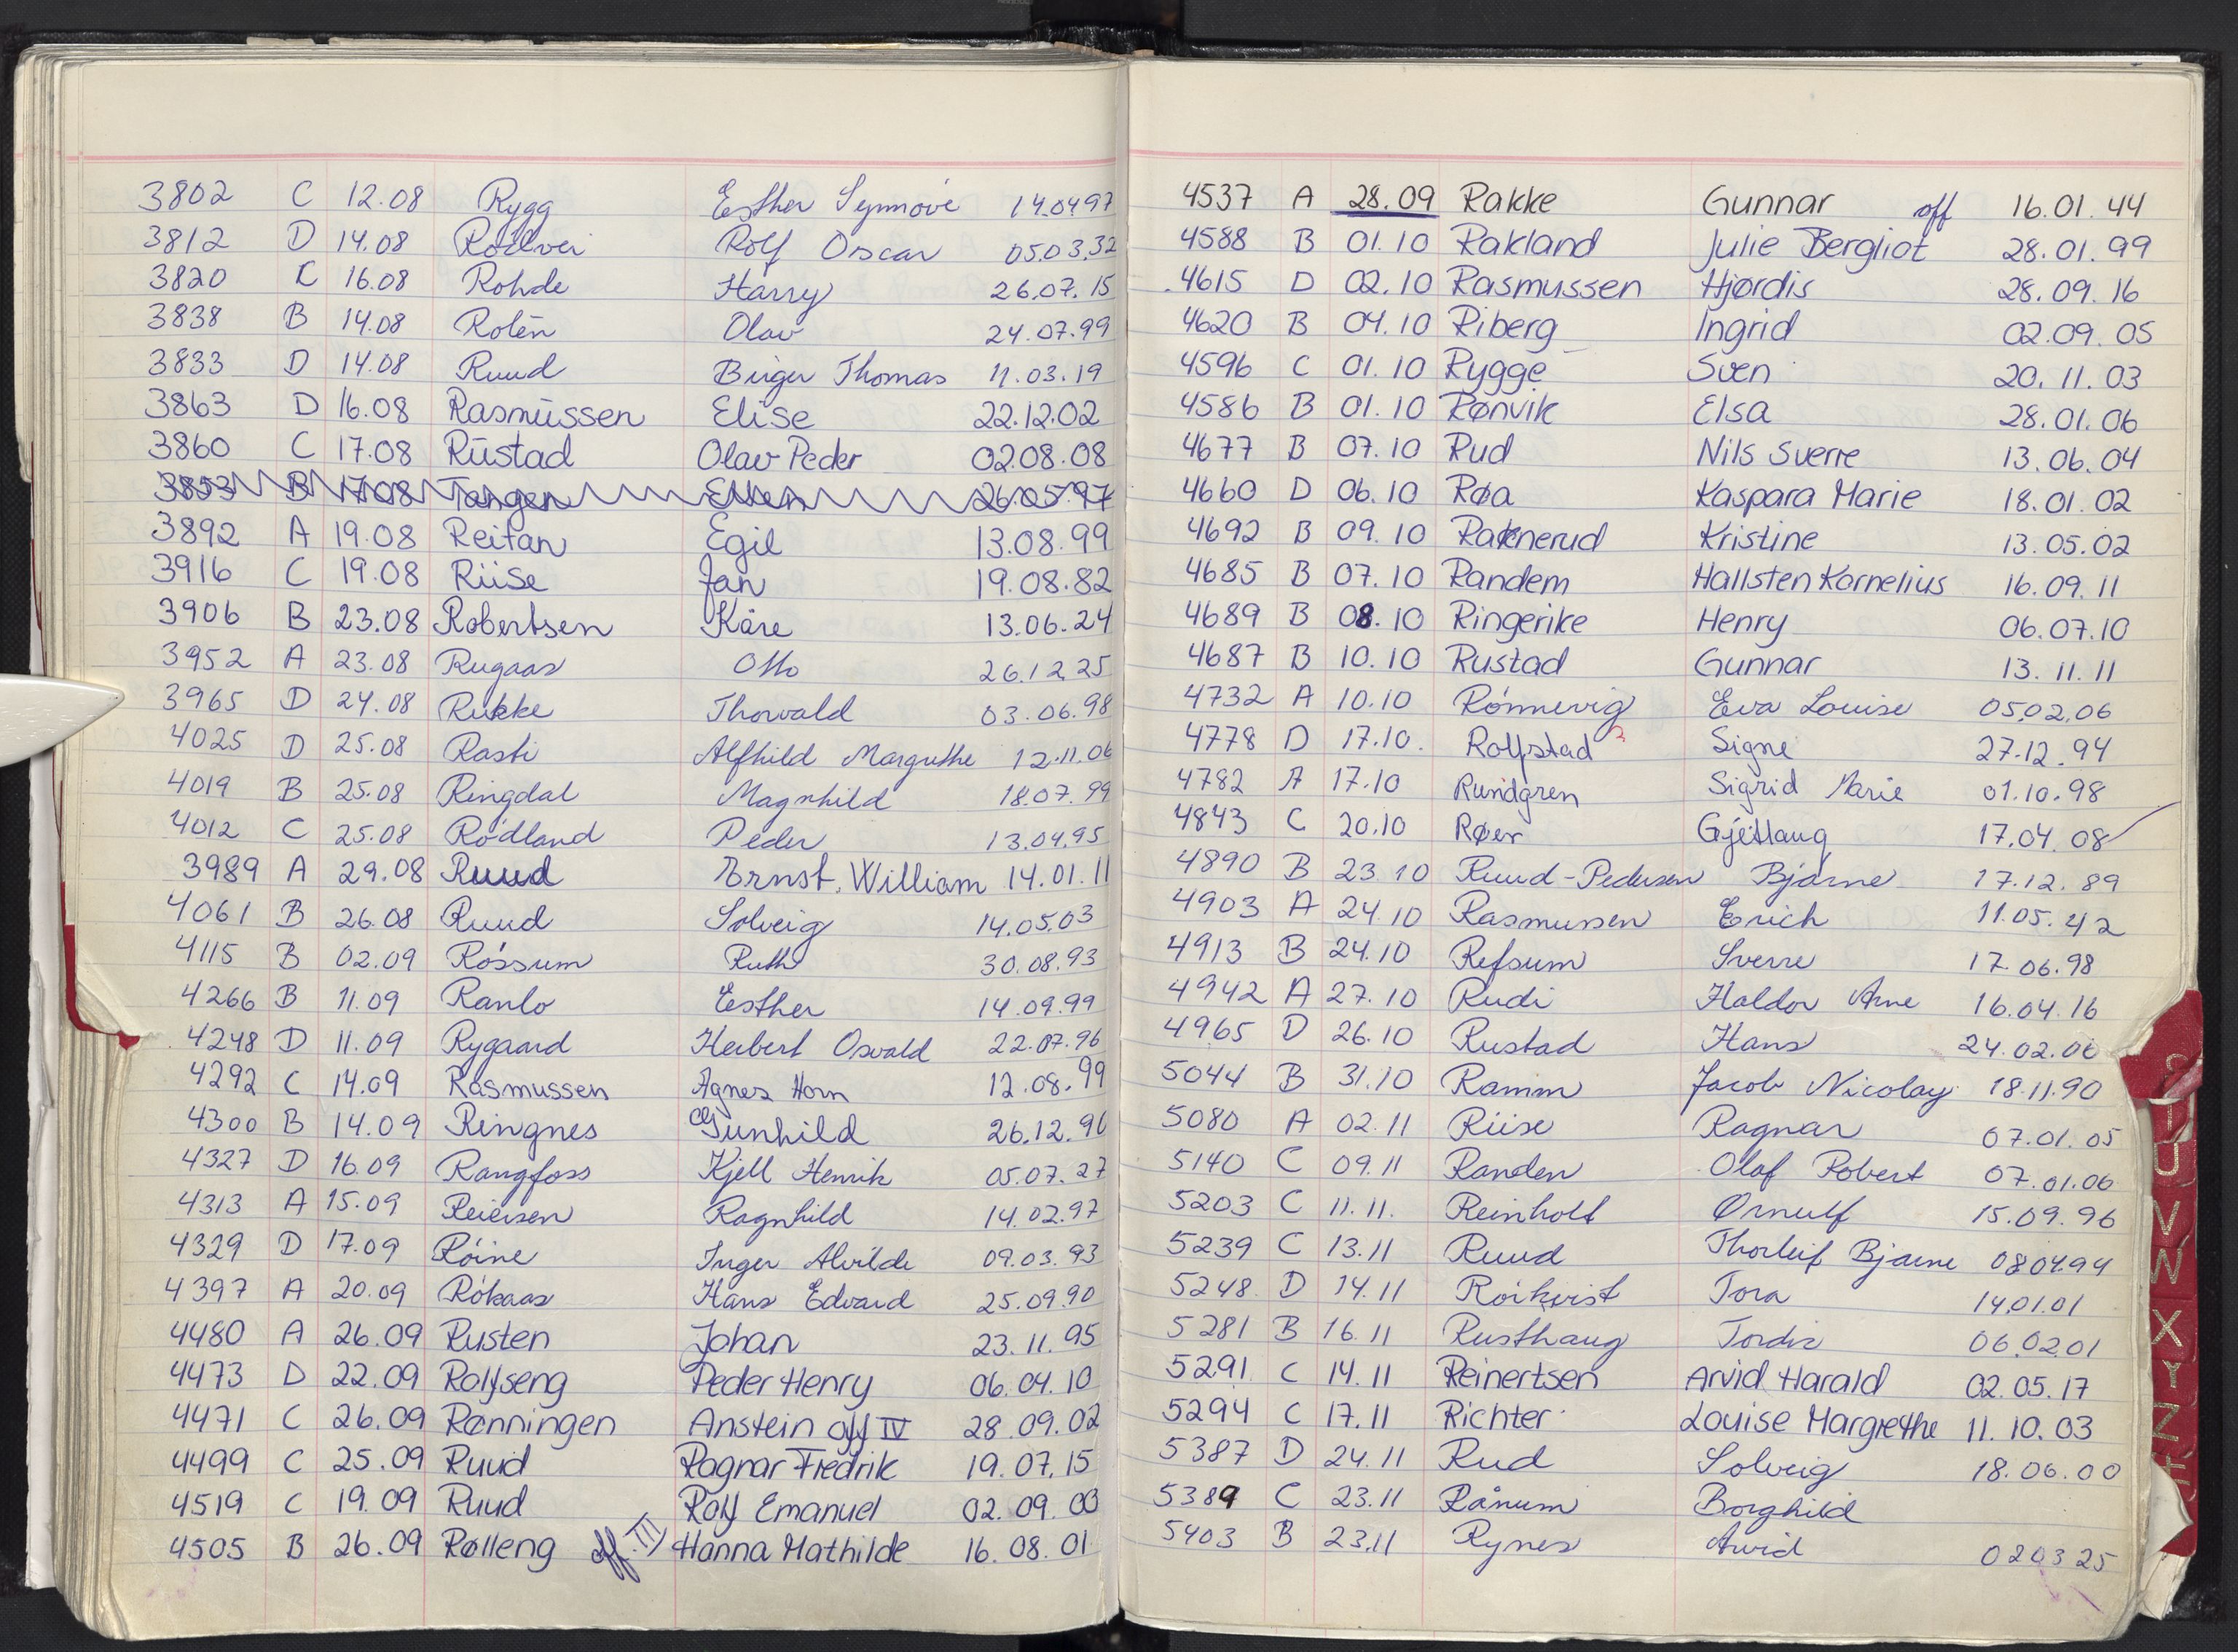 3802 C 12.08 Rygg Esther Synnøve 14.04.97
3812 D 14.08 Rolf Oscar 05.03.32
3820 16.08 Rohde Harry 26.07.15
3838 B 14.08 Rolèn Olav 24.07.99
3833 D 14.08 Ruud Birger Thomas 11.03.19
3863 D 16.08 Rasmussen Elise 22.12.02
3860 C 17.08 Rustad Olav Peder 02.08.08
3853 B 17.08 Tangen Ellen 26.05.97
3892 A 19.08 Reitan Egil 13.08.99
3916 C 19.08 Riise Jan 19.08.82
3906 B 23.08 Robertsen Kåre 13.06.24
3952 A 23.08 Rugaas Otto 26.12.25
3965 D 24.08 Rukke Thorvald 03.06.98
4025 D 25.08 Rasti Alfhild Margrethe 12.11.06
4019 B 25.08 Ringdal Magnhild 18.07.99
4012 C 25.08 Rödland Peder 13.04.95
3989 A 29.08 Ruud Ernst William 14.01.11
4061 B 26.08 Ruud Solveig 14.05.03
4115 B 02.09 Røssum Ruth 30.08.93
4266 B 11.09 Ranlo Esther 14.09.99
4248 D 11.09 Rygaard Herbert Osvald 22.07.96
4292 C 14.09 Rasmussen Agnes Horn 12.08.99
4300 B 14.09 Ringnes Gunhild 26.12.96
4327 D 16.09 Rangfoss Kjell Henrik 05.07.27
4313 A 15.09 Reiersen Ragnhild 14.02.97
4329 D 17.09 Røine Inger Alvilde 09.03.93
4397 A 20.09 Røkaas Hans Edvard 25.09.90
4480 A 26.09 Rusten Johan 23.11.95
4473 D 22.09 Rolfseng Peder Henry 06.04.10
4471 C 26.09 Rønningen Anstein off IV 28.09.02
4499 C 25.09 Ruud Ragnar Fredrik 19.07.15
4519 C 19.09 Ruud Rolf Emanuel 02.09.00
4505 B 26.09 Rølleng off. III Hanna Mathilde 16.08.01
4537 A 28.09 Rakke Gunnar off 16.01.44
4588 B 01.10 Rakland Julie Bergliot 28.01.99
4615 D 02.10 Rasmussen Hjørdis 28.09.16
4620 B 04.10 Riberg Ingrid 02.09.05
4596 C 01.10 Rygge Sven 20.11.03
4586 B 01.10 Rønvik Elsa 28.01.06
4677 B 07.10 Rud Nils Sverre 13.06.04
4660 D 06.10 Røa Kaspara Marie 18.01.02
4692 B 09.10 Raknerud Kristine 13.05.02
4685 B 07.10 Randem Hallsten Kornelius 16.09.11
4689 B 08.10 Ringerike Henry 06.07.10
4687 B 10.10 Rustad Gunnar 13.11.11
4732 A 10.10 Rønnevig Eva Louise 05.02.06
4778 D 17.10. Rolfstad Signe 27.12.94
4782 A 17.10 Rundgren Sigrid Marie 01.10.98
4843 C 20.10 Røer Gjetlaug 17.04.08
4890 B 23.10 Ruud-Pedersen Bjarne 17.12.89
4903 A 24.10 Rasmussen Erich 11.05.42
4913 B 24.10 Refsum Sverre 17.06.98
4942 A 27.10 Rudi Haldor Arne 16.04.16
4965 D 26.10 Rustad Hans 24.02.06
5044 B 31.10 Ramm Jacob Nicolay 18.11.90
5080 A 02.11 Riise Ragnar 07.01.05
5140 C 09.11 Randen Olaf Robert 07.01.06
5203 C 11.11. Reinholt Ørnulf 15.09.96
5239 C 13.11 Ruud Thorleif Bjarne 08.04.94
5248 D 14.11 Röikvist Tora 14.01.01
5281 B 16.11 Rusthaug Tordis 06.02.01
5291 C 14.11 Reinertsen Arvid Harald 02.05.17
5294 C 17.11 Richter Louise Margrethe 11.10.03
5387 D 24.11 Rud Solveig 18.06.00
5389 C 23.11 Rånum Borghild
5403 B 23.11 Rynes Arvid 02.03.25
U
V
W
X
Y
Z
Æ